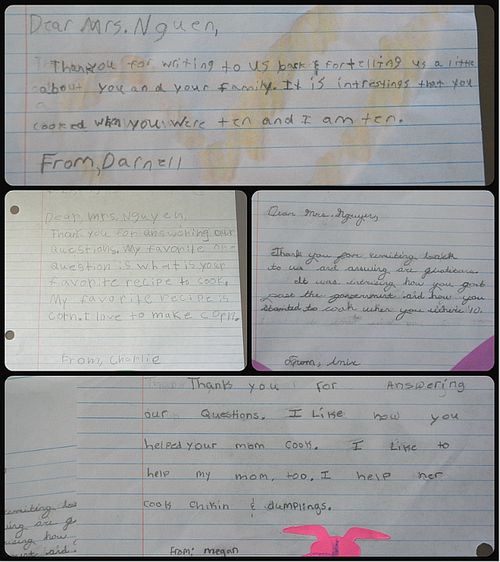 Dear Mrs. Nguen,
Thankyou for writing to us back & for telling us a little
about you and your family. It is intrestings that you
cooked when you were ten and I am ten.
From, Darnell
Dear, Mrs. Nguyen,
Thank you for answering our
questions. My favorite one
question is what is your
favorite recipe to cook.
My favorite recipe is
corn. I love to make corn.
From, Charlie
Dear Mrs. Nguyen,
Thank you for writing back
to us and are
It was how you got
past the government and how you
started to cook when you where 10.
From,
Thank you for Answering
our Questions. I Like how you
helped your mom cook. I Like to
help my mom, too. I help her
cook chikin & dumplings.
From: megan